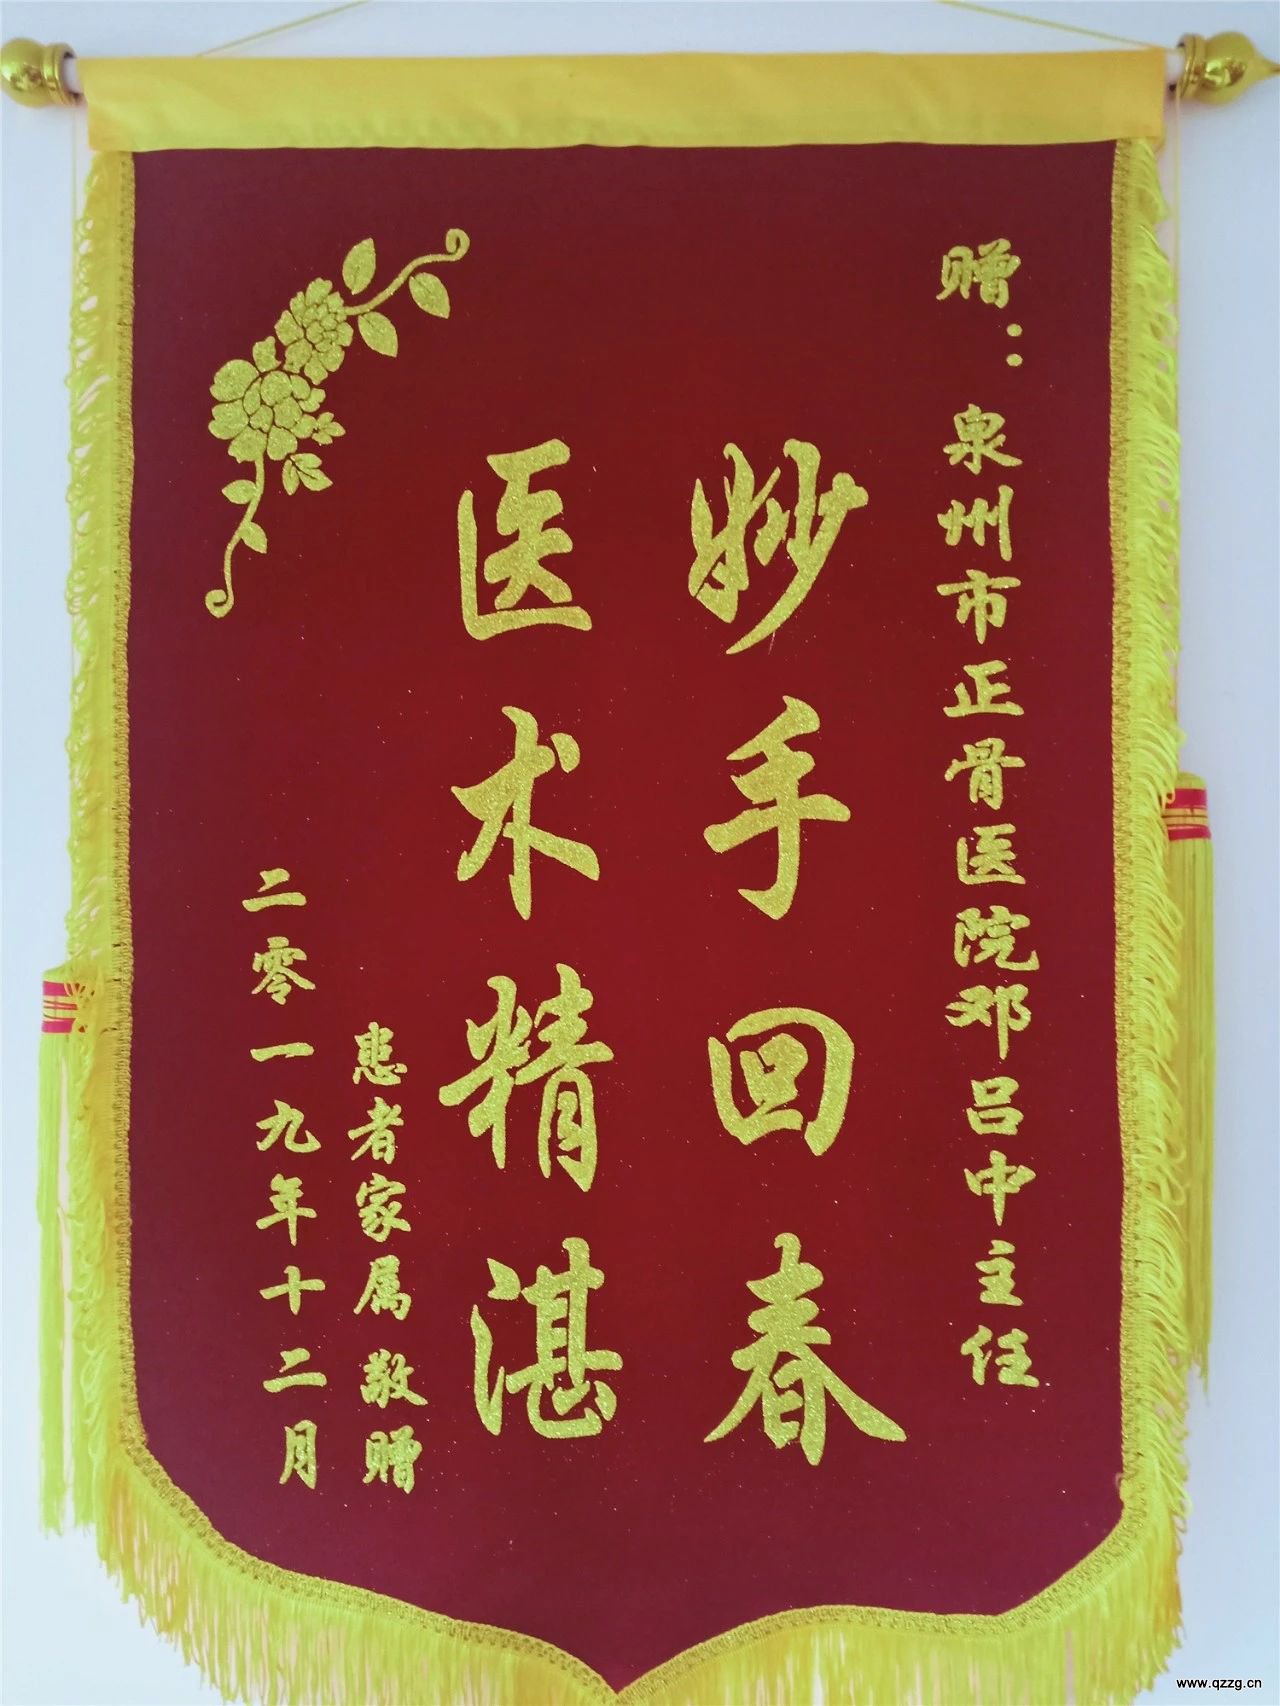 赠：泉州市正骨医院邓吕中主任
妙手回春
医术精湛
患者家属 敬赠
二零一九年十二月
www.qzzg.cn